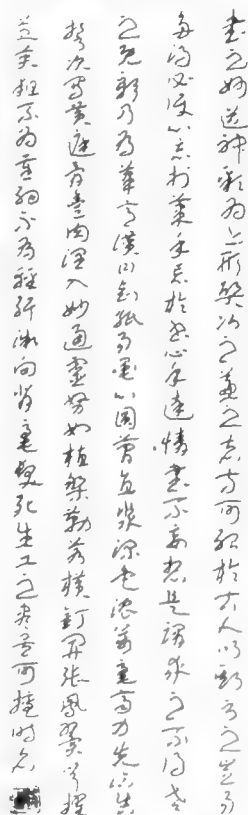 書之妙道神彩為上形質次之兼之者方可紹於古人以斯言之豈易
多得必使心忘於筆手忘於書心手達情書不妄想是謂求之不得考
之即彰乃為筆意贊曰剡紙易墨心圓管直漿深色濃萬毫齊力先臨告
誓次寫黃庭骨豐肉潤入妙通靈努如植槊勒若橫釘開張鳳翼聳擢
芝英粗不為重細不為輕纖微向背毫髮死生工之盡矣可擅時名